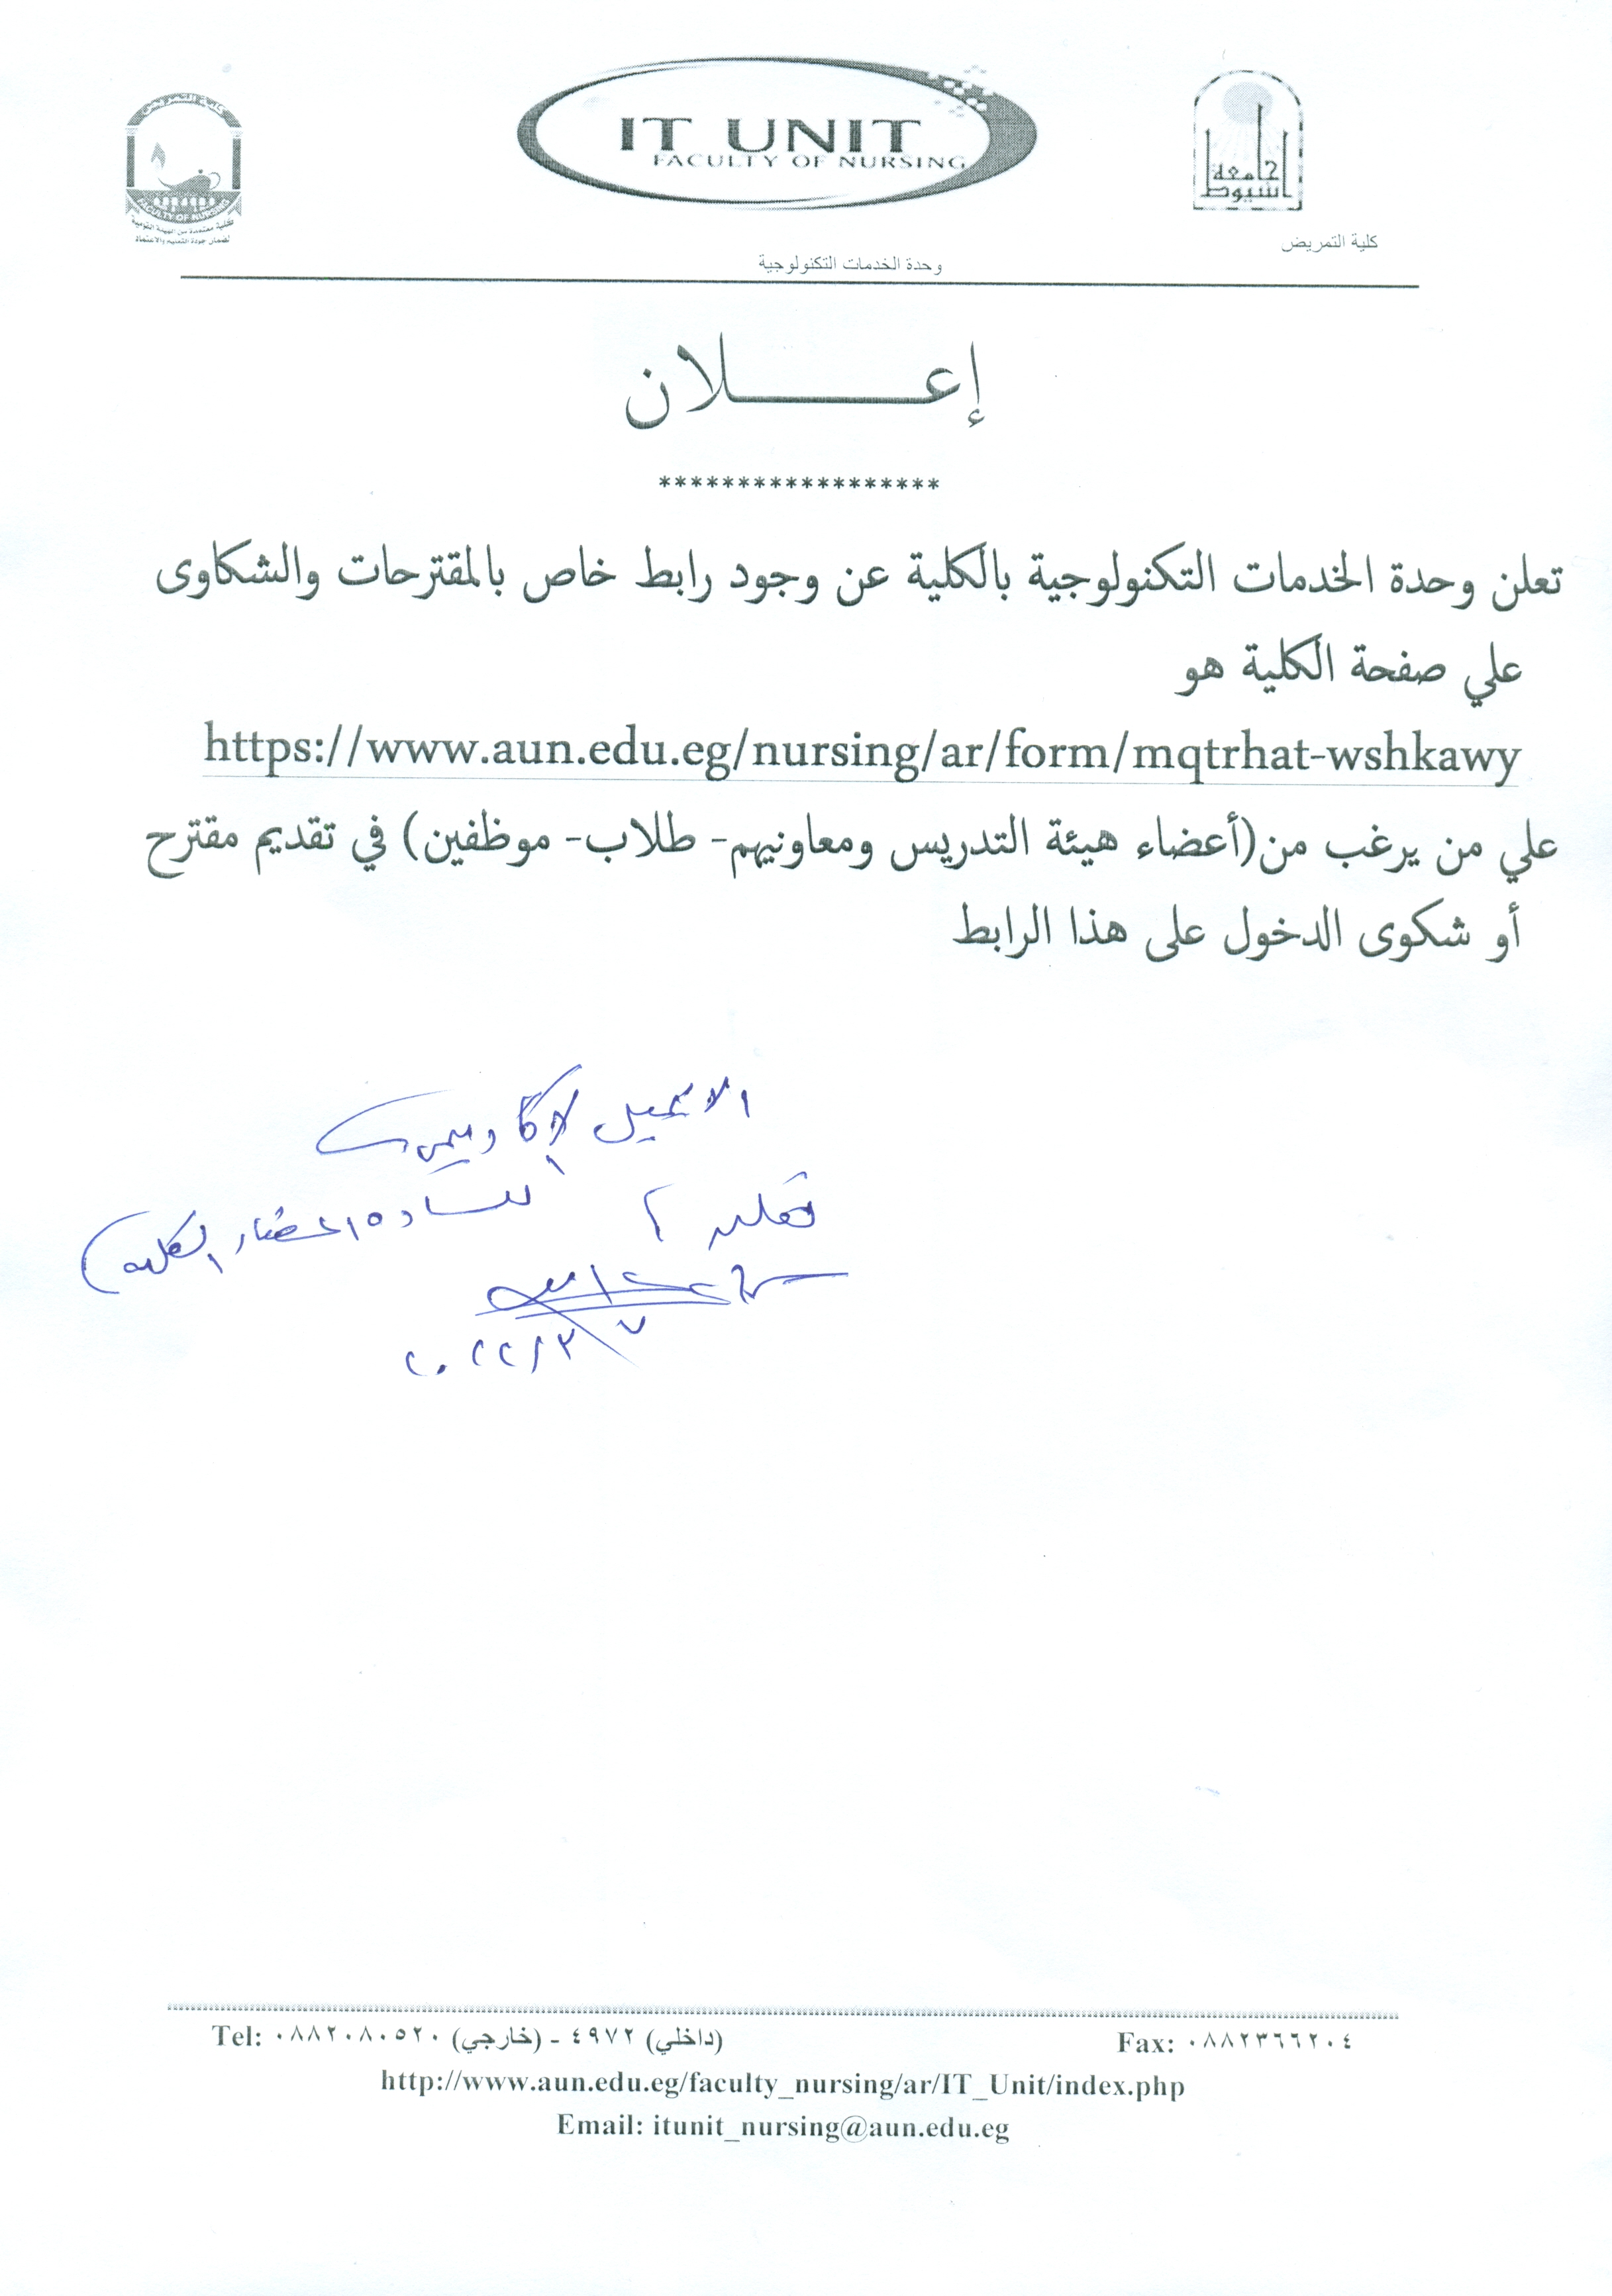 كلية التمريض
FACULTY OF NURSING
كلية معتمدة من الهيئة القومية
لضمان جودة التعليم والاعتماد
IT UNIT
FACULTY OF NURSING
جامعة
اسيوط
كلية التمريض
وحدة الخدمات التكنولوجية
إعـــــــلان
******************
تعلن وحدة الخدمات التكنولوجية بالكلية عن وجود رابط خاص بالمقترحات والشكاوى
علي صفحة الكلية هو
https://www.aun.edu.eg/nursing/ar/form/mqtrhat-wshkawy
علي من يرغب من(أعضاء هيئة التدريس ومعاونيهم- طلاب- موظفين) في تقديم مقترح
أو شكوى الدخول على هذا الرابط
الاكاديمى
للسادة اعضاء الكلية)
٢٠٢٢/٣/٧
Tel: ٠٨٨٢٠٨٠٥٢٠ (خارجي) - ٤٩٧٢ (داخلي)
Fax: ٠٨٨٢٣٦٦٢٠٤
http://www.aun.edu.eg/faculty_nursing/ar/IT_Unit/index.php
Email: itunit_nursing@aun.edu.eg